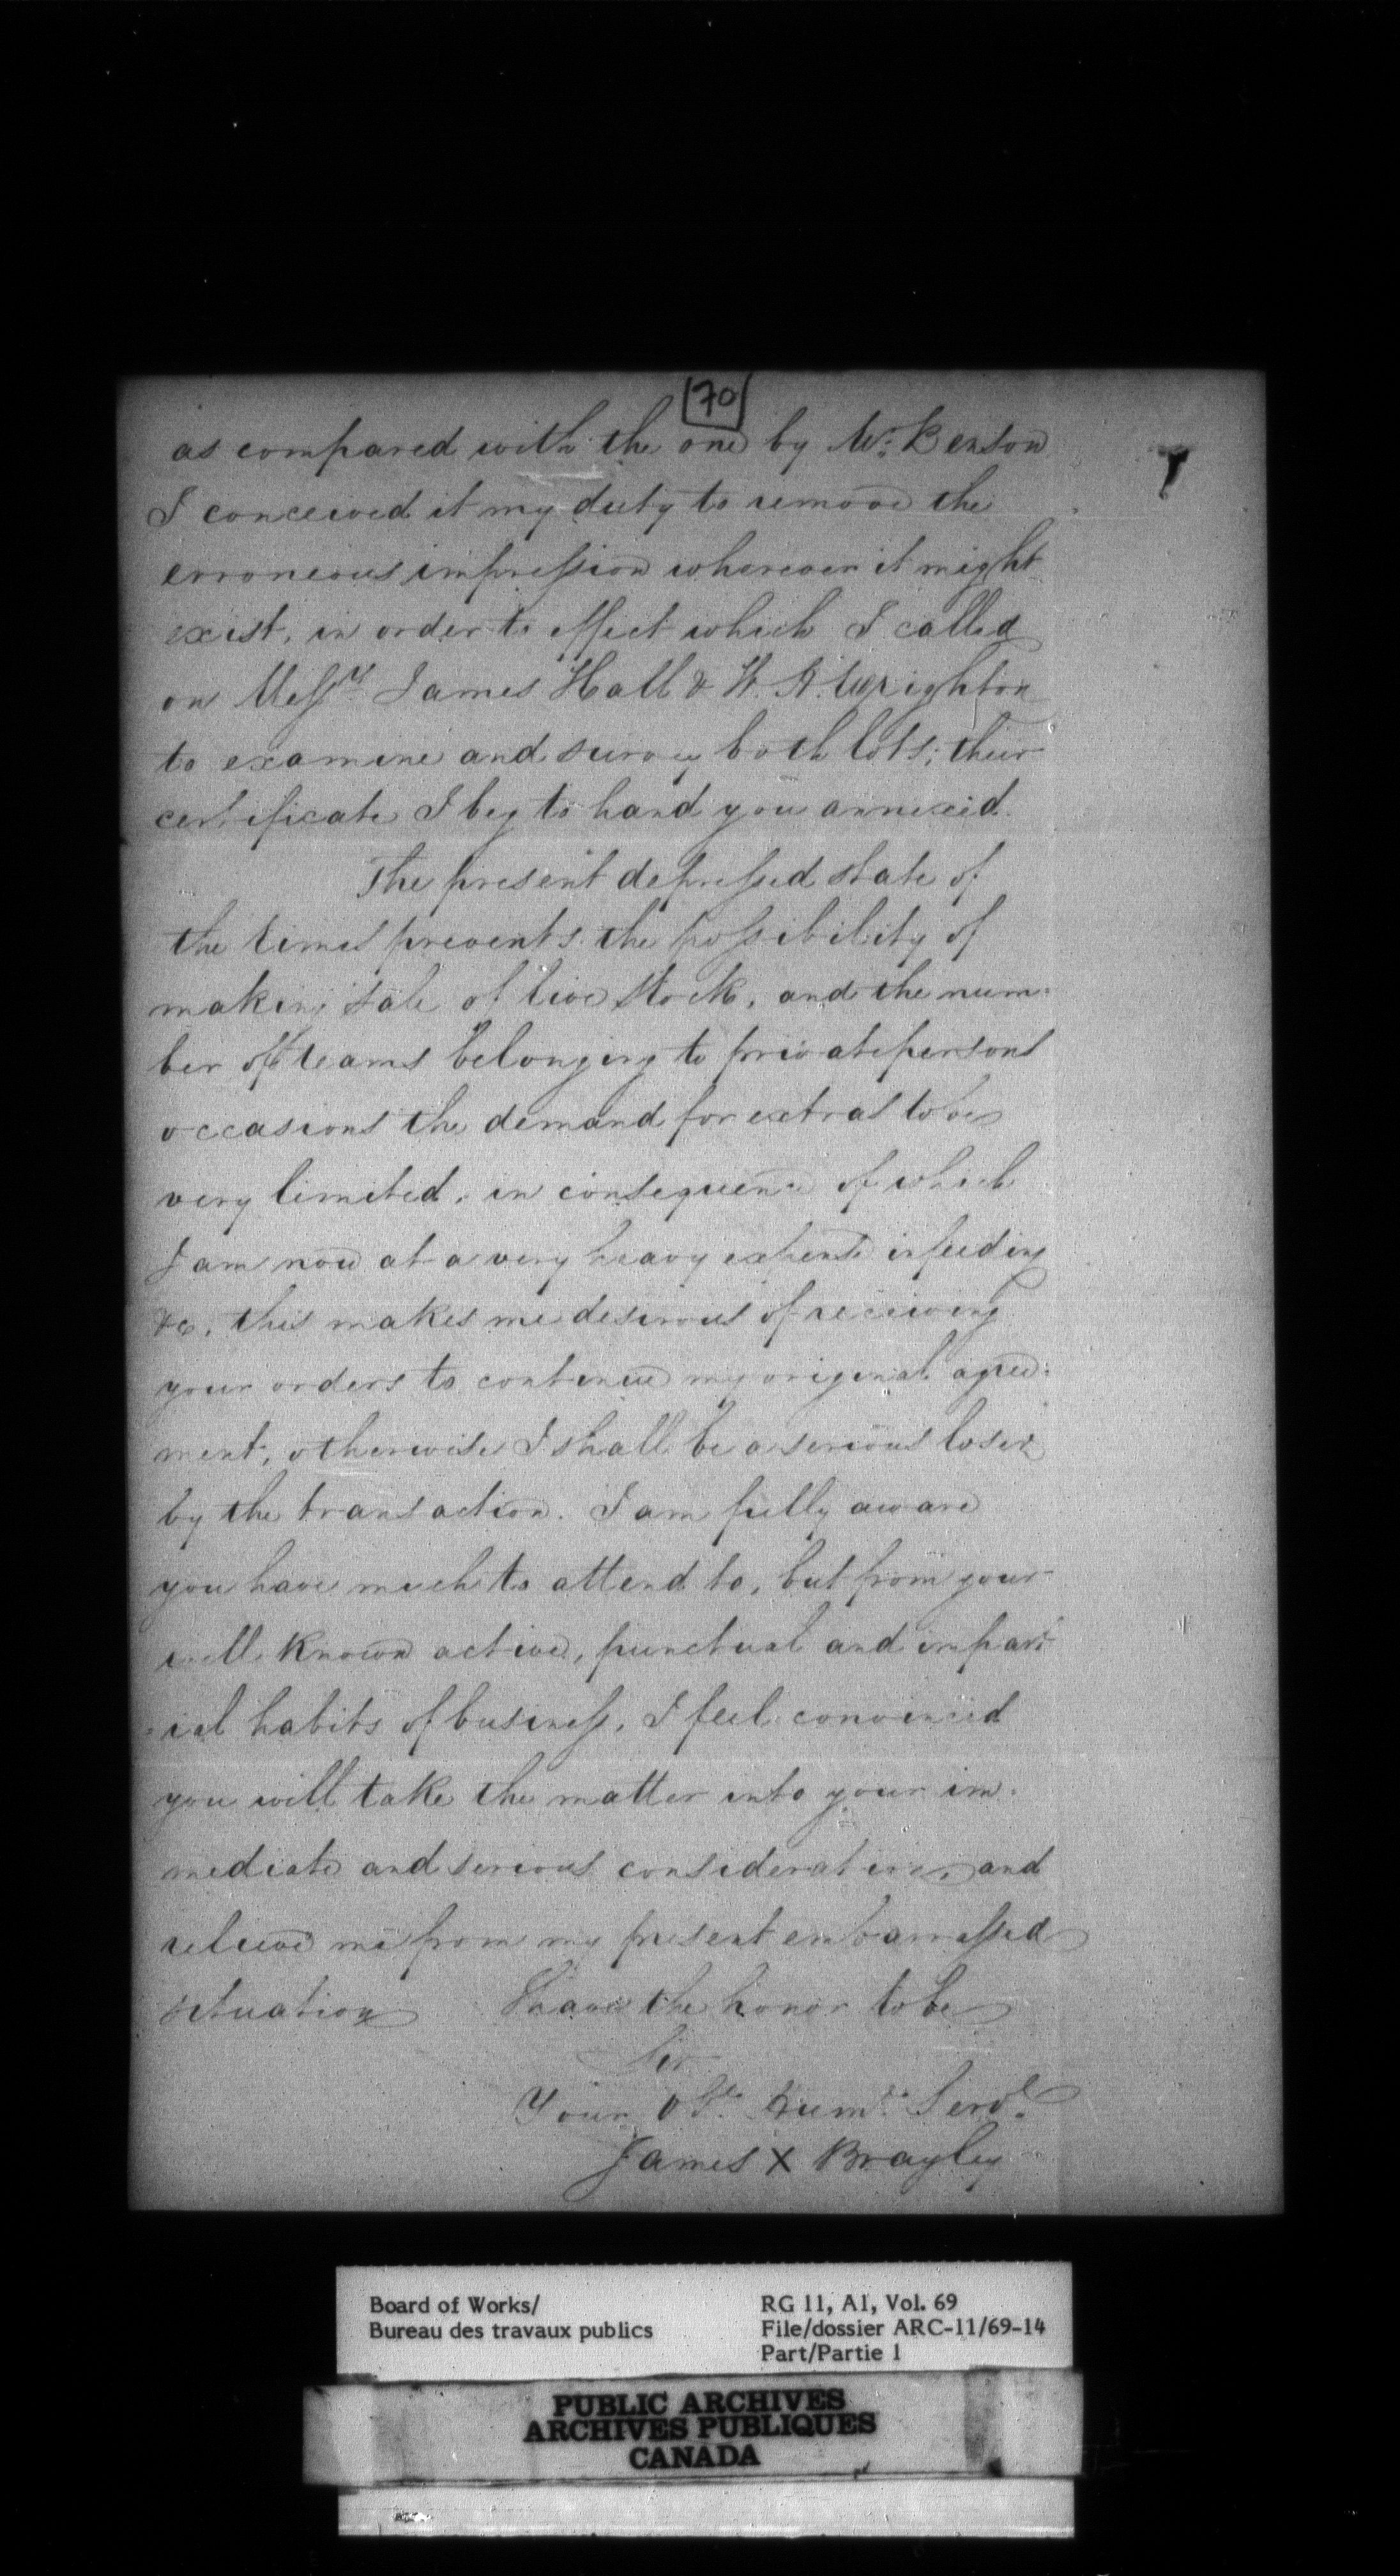 70
as compared with the one by Mr. Benson
I conceived it my duty to remove the
erroneous impression wherever it might
exist, in order to effect which I called
on Messrs James Hall & W. A. Wrighton
to examine and survey both lots; their
certificate I beg to hand you annexed.
The present depressed state of
the times prevents the possibility of
making sale of live stock, and the num:
ber of teams belonging to private persons
occasions the demand for extras to be
very limited, in consequence of which
I am now at a very heavy expense in feeding
&c, this makes me desirous of receiving
your orders to continue my original agree:
ment, otherwise I shall be a serious loser
by the transaction. I am fully aware
you have much to attend to, but from your
well known active, punctual and impart
=ial habits of business, I feel convinced
you will take the matter into your im:
mediate and serious consideration, and
relieve me from my present embarrassed
situation I have the honor to be
Sir
Your Obt. Hume. Servt.
James X Brayley
Board of Works/
Bureau des travaux publics
RG 11, A1, Vol. 69
File/dossier ARC-11/69-14
Part/Partie 1
PUBLIC ARCHIVES
ARCHIVES PUBLIQUES
CANADA